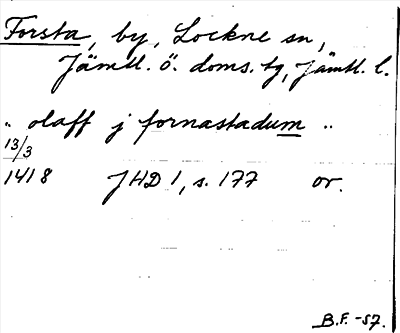 Forsta, by, Lockne sn,
Jämtl. ö. doms. tg, Jämtl. l.
" olaff j fornastadum "
13/3
1418 JHD 1, s. 177 or.
B.F. -57.